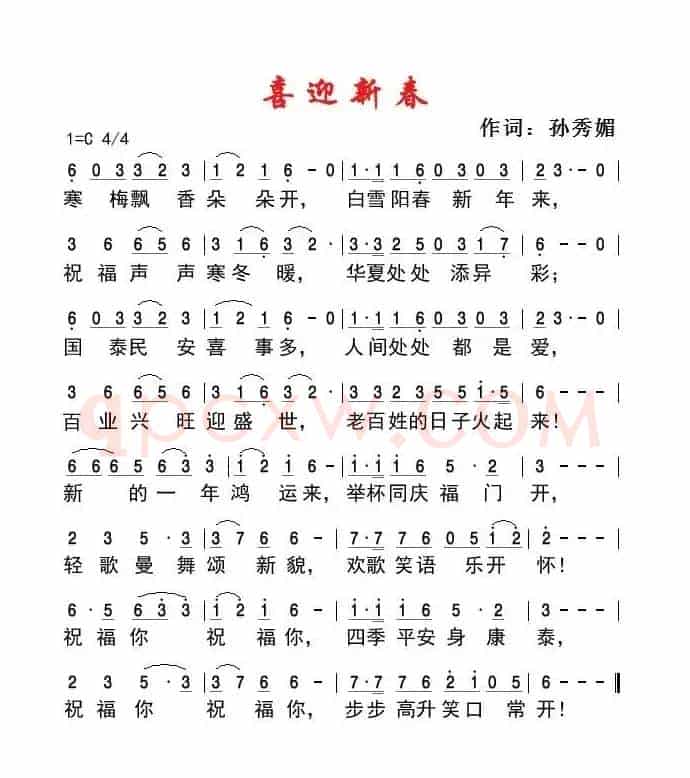 喜迎新春
作词：孙秀媚
1=C 4/4
6 0 3 3 2 3 | 1 2 1 6 - 0 | 1·1 1 6 0 3 0 3 | 2 3 - 0 |
寒 梅飘 香朵 朵开， 白雪阳春 新 年 来，
3 6 6 5 6 | 3 1 6 3 2 · | 3·3 2 5 0 3 1 7 | 6 - - 0 |
祝 福 声 声寒冬 暖， 华夏处处 添异 彩；
6 0 3 3 2 3 | 1 2 1 6 - 0 | 1·1 1 6 0 3 0 3 | 2 3 - 0 |
国 泰民 安喜 事多， 人间处处 都 是 爱，
3 6 6 5 6 | 3 1 6 3 · | 3 3 2 3 5 5 1·5 | 6 - - 0 |
百 业 兴 旺 迎 盛 世， 老百姓的日子火起 来！
qpcxw.COM
6 6 6 5 6 3 3 | 2 1 2 6 - | 6·6 6 5 1 6 5 · 2 | 3 - - - |
新 的一 年鸿 运来，举杯同庆 福 门 开，
2 3 5 · 3 | 3 7 6 6 - | 7·7 7 6 0 5 1 2 | 2 - - - |
轻 歌 曼 舞 颂 新 貌， 欢歌 笑语 乐开 怀！
6 · 5 6 3 3 | 1 2 1 6 - | 1·1 1 6 1 6 5 3 | 3 - - - |
祝 福 你 祝 福 你， 四季 平安 身 康 泰，
2 3 5 · 3 | 3 7 6 6 - | 7·7 7 6 2 1 0 5 | 6 - - - ‖
祝 福 你 祝 福 你， 步步 高升 笑口 常 开！